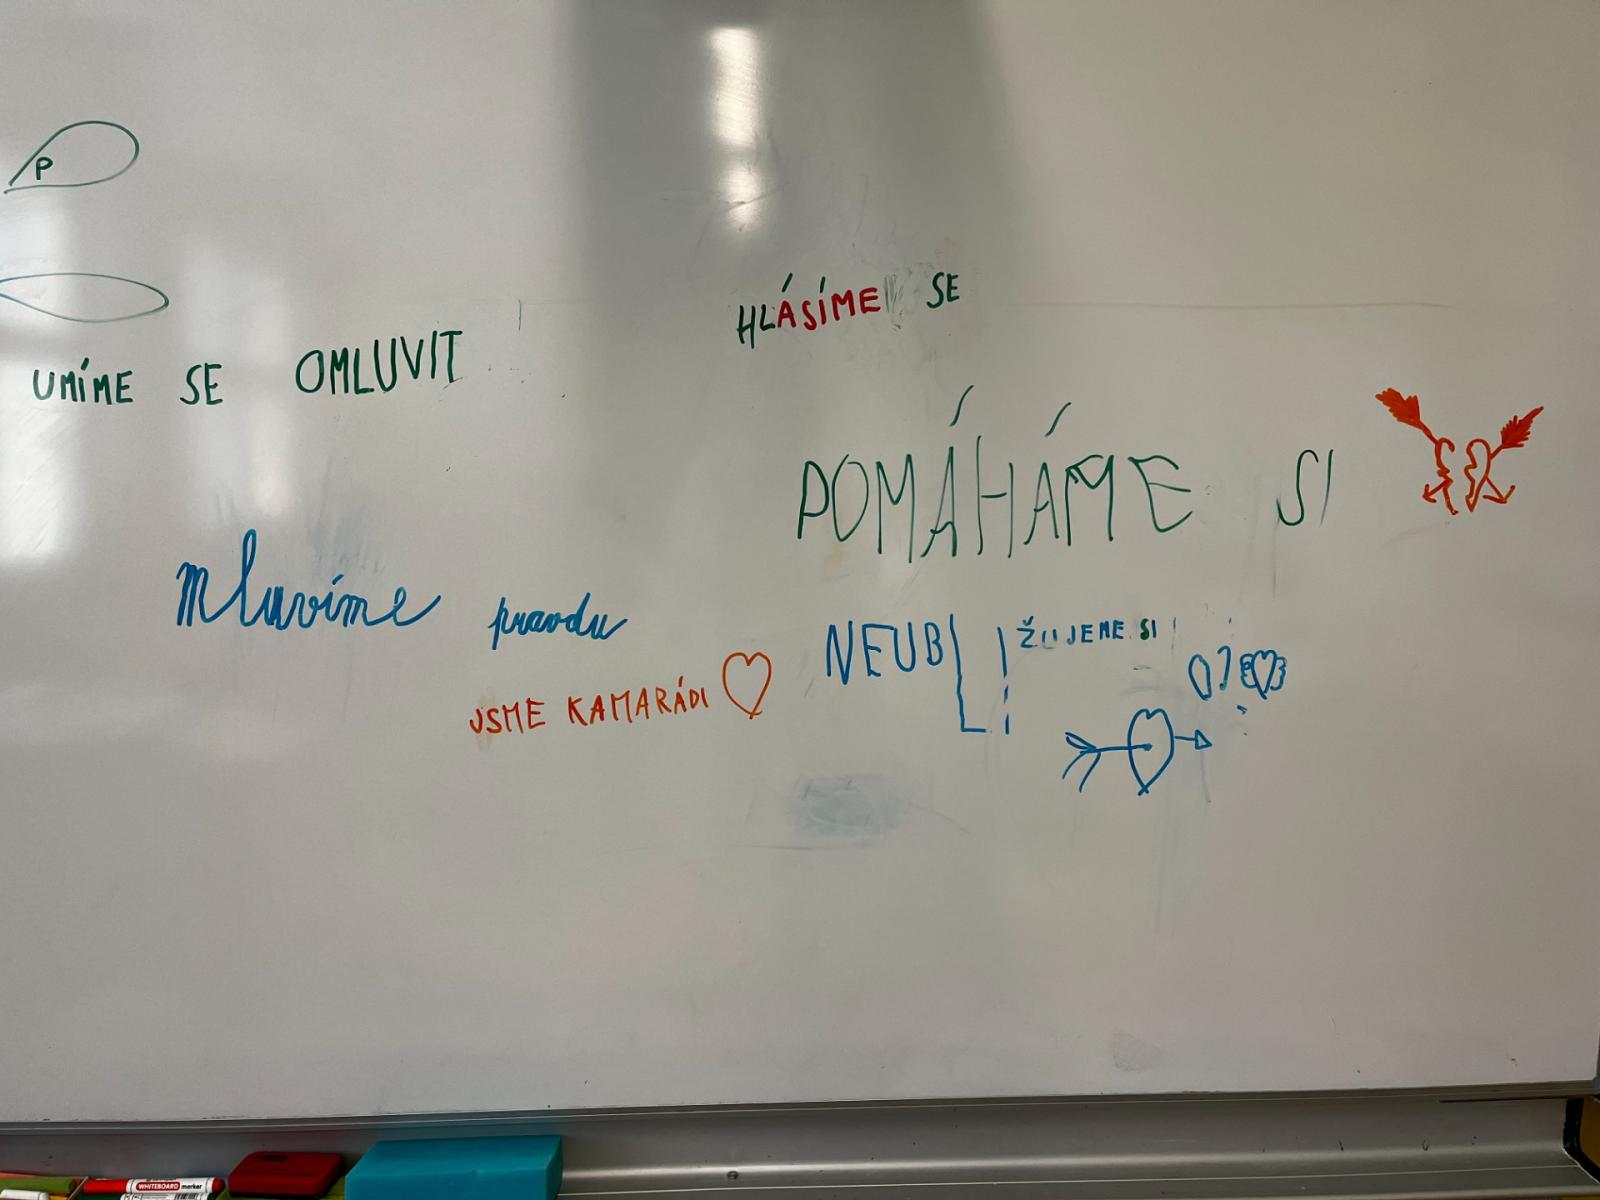 P
UMÍME SE OMLUVIT
HLÁSÍME SE
POMÁHÁME SI
Mluvíme pravdu
NEUBLIŽUJEME SI
JSME KAMARÁDI
WHITEBOARD marker